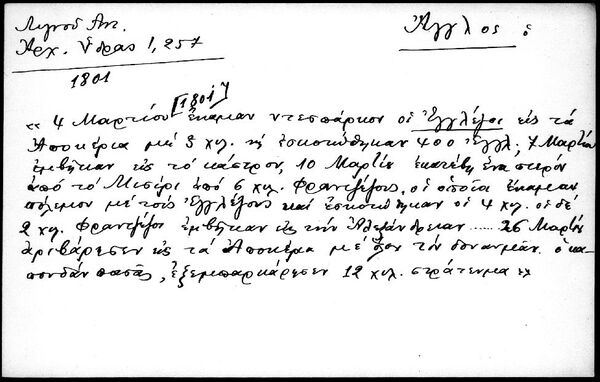 Λιγνοῦ Ἀντ.
Ἀρχ. Ὕδρας 1, 257
Ἄγγλος ὁ
1801
« 4 Μαρτίου [1801] ἔκαμαν ντεσπάρκον οἱ Ἐγγλέζοι εἰς τὰ
Ἀποκέρια μὲ 5 χιλ. κὴ ἐσκοτώθηκαν 400 Ἐγγλ; 7 Μαρτίου
ἐμβῆκαν εἰς τὸ κάστρον, 10 Μαρτίου ἐκατέβη ἕνα
ἀπὸ τὸ Μισίρι ἀπὸ 6 χιλ. Φραντζέζους, οἱ ὁποῖοι ἔκαμαν
πόλεμον μὲ τοὺς Ἐγγλέζους καὶ ἐσκοτώθηκαν οἱ 4 χιλ. οἱ δὲ
2 χιλ. Φραντζέζοι ἐμβῆκαν εἰς τὴν Ἀλεξάνδρειαν ...... 26 Μαρτίου
ἀριβάρεσεν εἰς τὰ Ἀποκέρια μὲ ὅλην τὸν δουναμμᾶν. ὁ κα-
πουδὰν πασᾶς, ἐξεμπαρκάρησεν 12 χιλ. στράτευμα